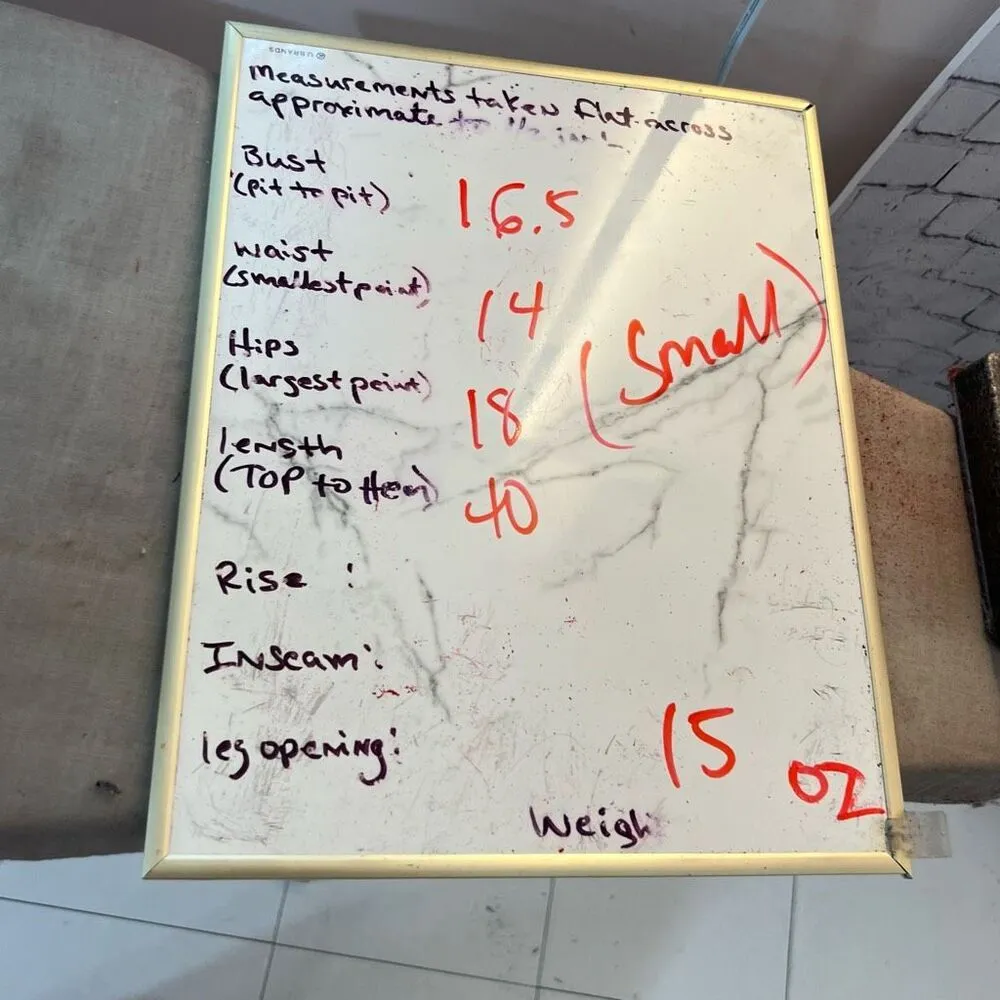 U BRANDS
Measurements taken flat across
approximate to
Bust
(pit to pit) 16.5
waist
(smallest point) 14
(Small)
Hips
(largest point) 18
length
(TOP to Hem) 40
Rise :
Inseam:
leg opening: 15 oz
Weigh